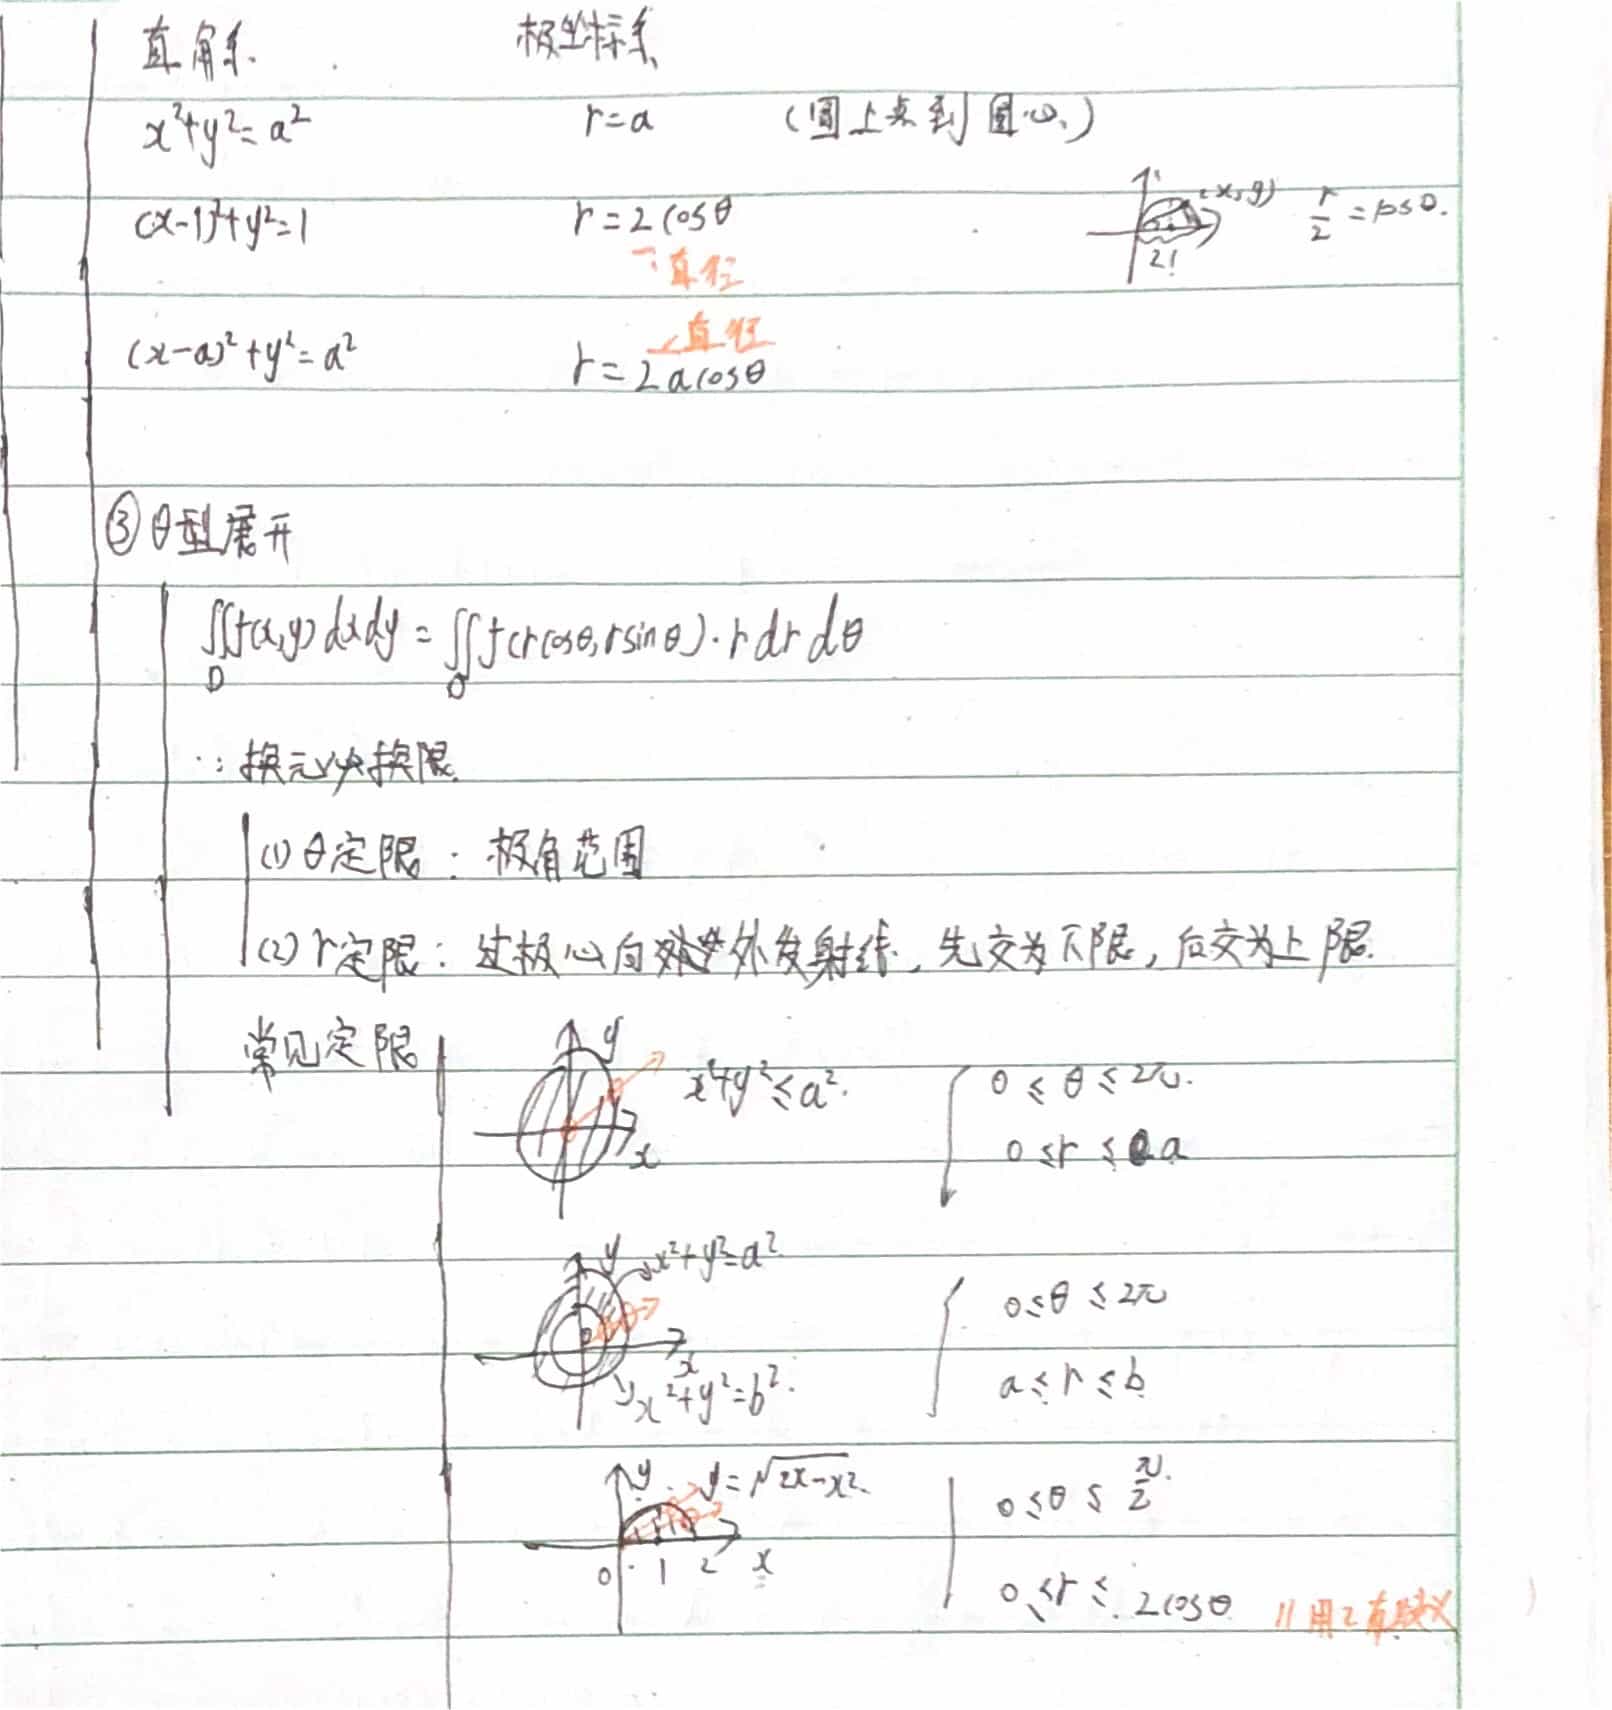 直角系 极坐标系
x²+y²=a² r=a (圆上点到圆心)
(x-1)²+y²=1 r=2cosθ (x,y) r/2=cosθ.
2
直径
直径
(x-a)²+y²=a² r=2acosθ
③θ型展开
∬f(x,y)dxdy=∬f(rcosθ,rsinθ)·rdrdθ
D σ
∵换元必换限.
(1)θ定限:极角范围
(2)r定限:过极心向外发射线,先交为下限,后交为上限.
常见定限 y x x²+y²≤a². 0≤θ≤2π.
0≤r≤a
y x²+y²=a². 0≤θ≤2π
x x²+y²=b². a≤r≤b
y y=√2x-x². 0≤θ≤π/2.
0 1 2 x 0≤r≤2cosθ //用2有歧义